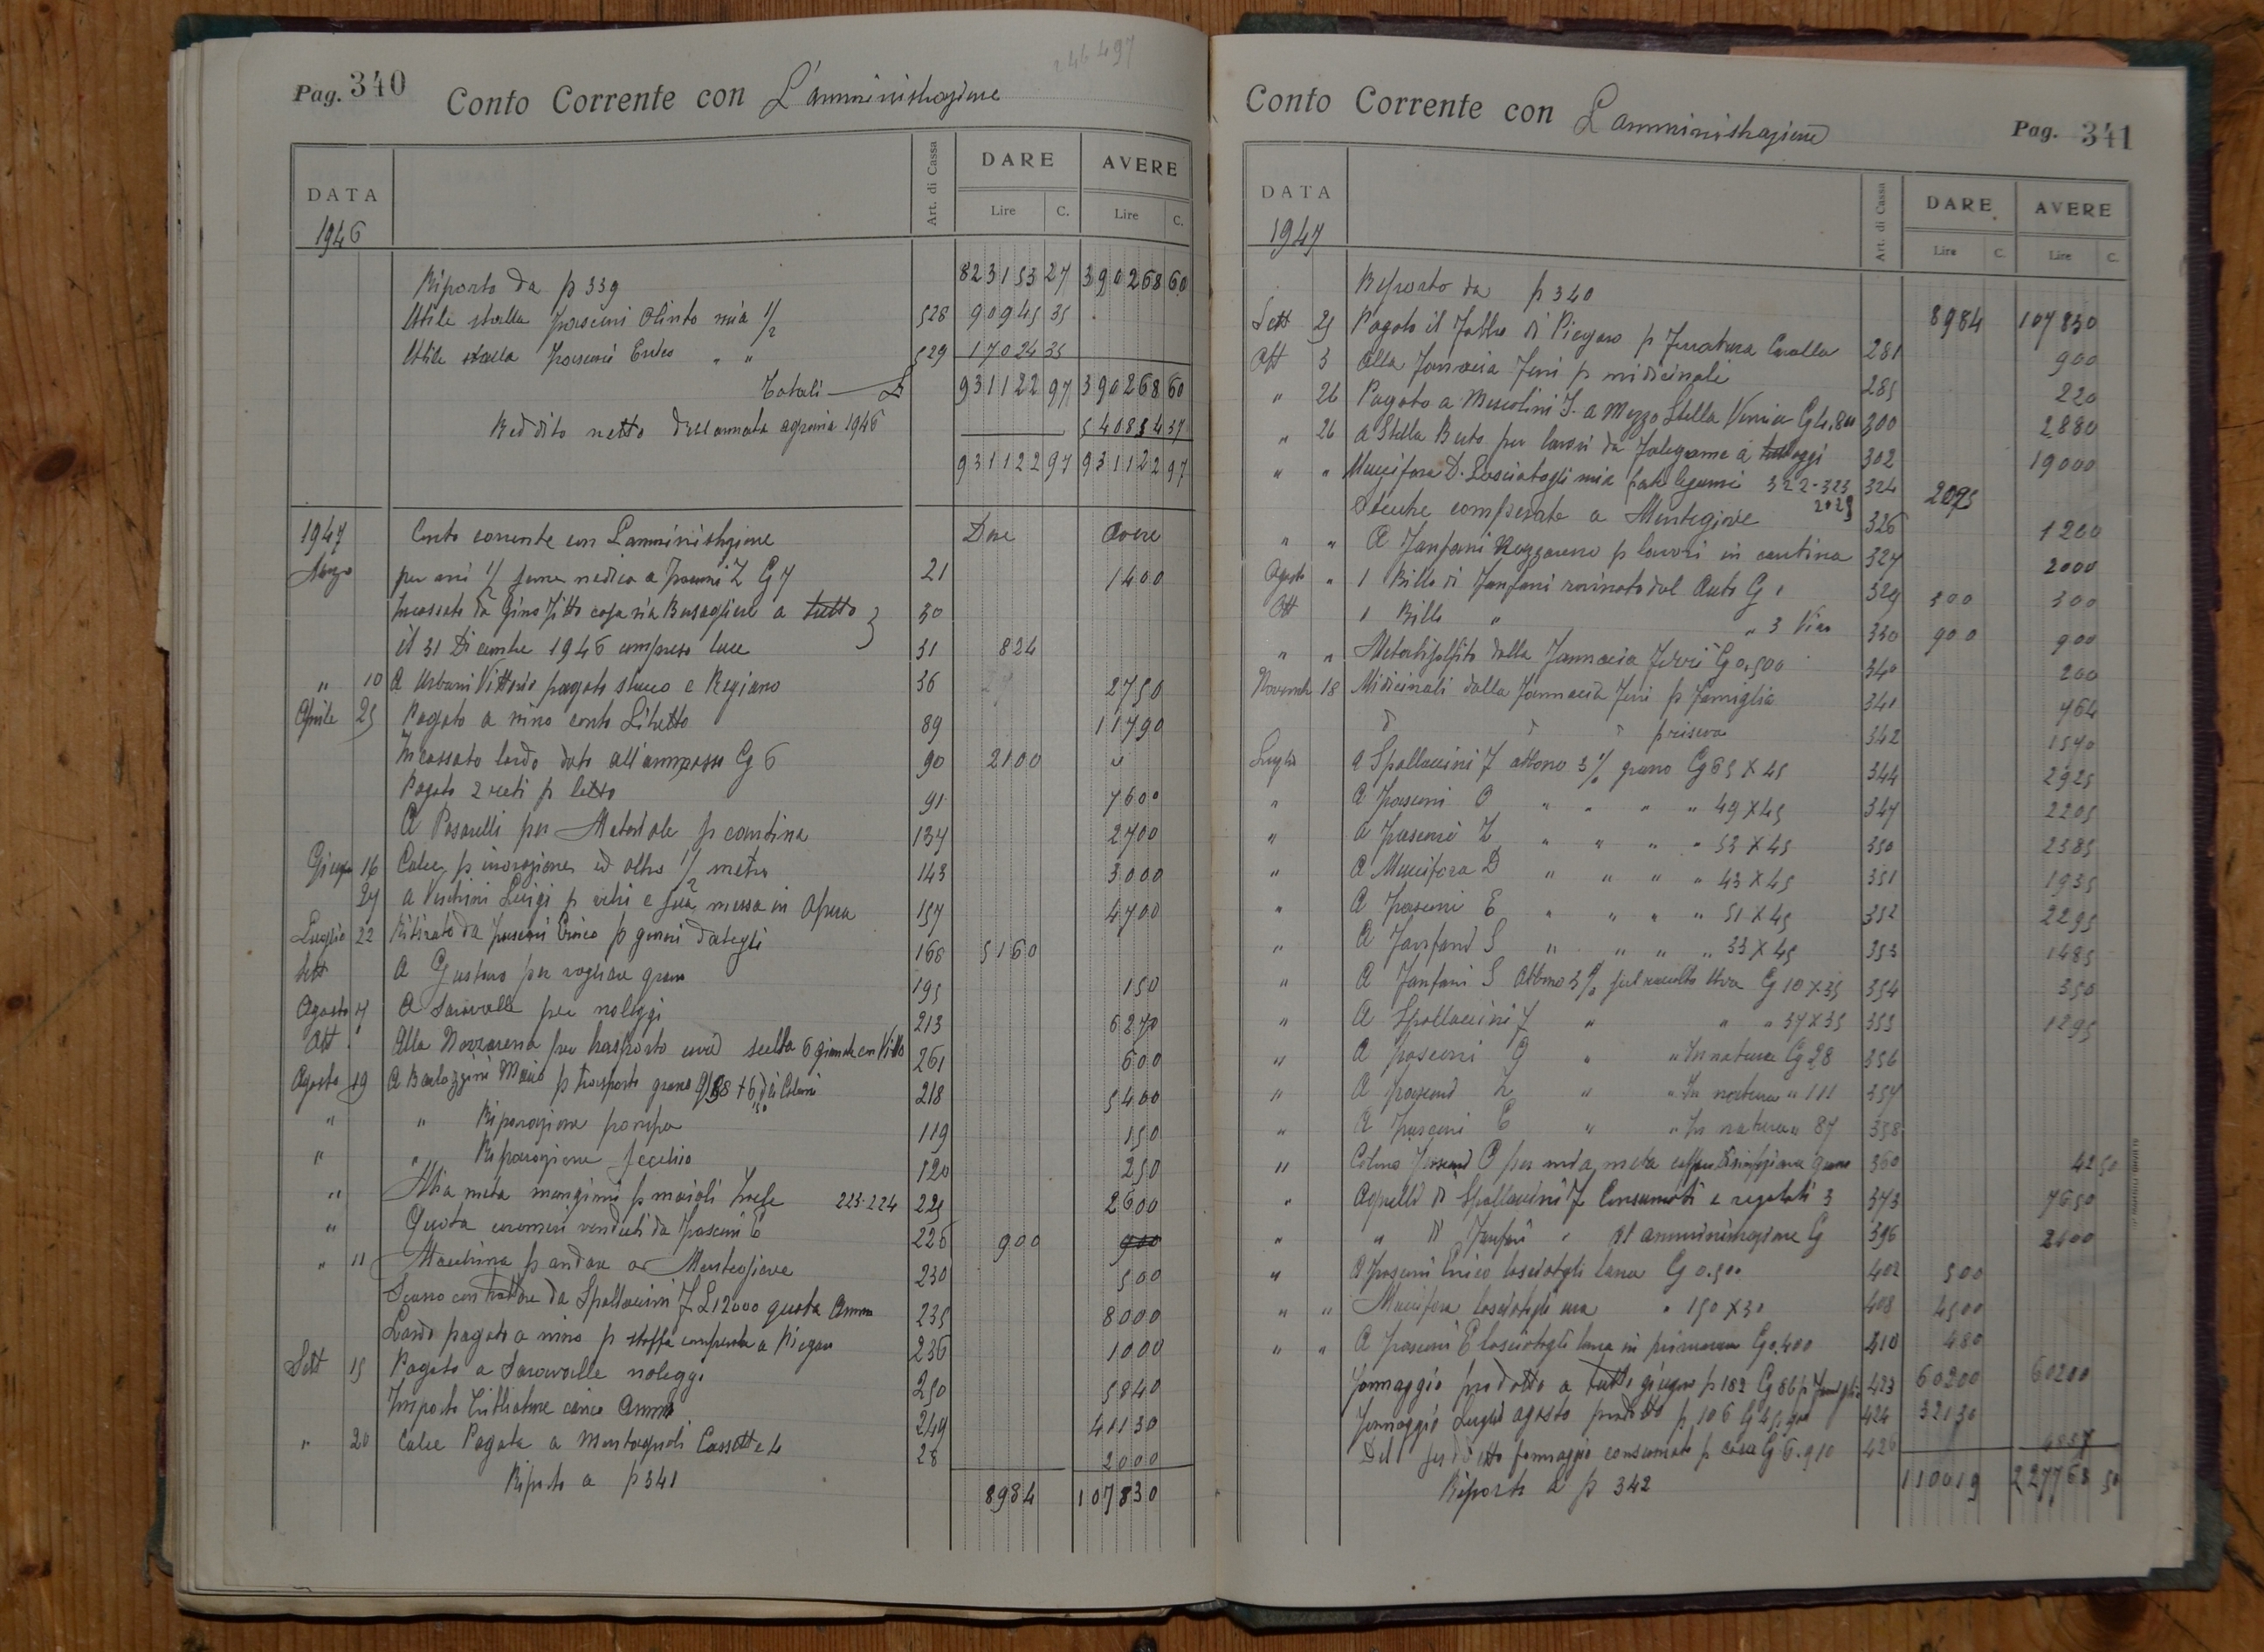 Pag. 340 Conto Corrente con L'amministrazione
DATA Art. di Cassa DARE AVERE
Lire C. Lire C.
1946
Riporto da p 339 823153 27 390268 60
Utile stalla Pasconi Olinto mia 1/2 528 90945 35
Utile stalla Pasconi Enrico " " 529 17024 35
Totali L 931122 97 390268 60
Reddito netto dell annata agraria 1946 540854 37
931122 97 931122 97
1947 Conto corrente con L'amministrazione Dare Avere
Marzo per mi 1/2 seme medica a Pasconi L Cg 7 21 1400
Incassato da Gino Fitto casa via Bersagliere a tutto 30
il 31 Dicembre 1946 compreso luce 31 824
" 10 A Urbani Vittorio pagato stucco e Regiano 36 2750
Aprile 25 Pagato a nino conto Libretto 89 11790
Incassato lardo dato all'ammasso Cg 6 90 2100
Pagato 2 reti p letto 91 7600
A Posarelli per Materiale p cantina 134 2700
Giugn 16 Calce p inorazione ed oltro 1/2 metro 143 3000
27 a Vechini Luigi p vetri e sua messa in opera 157 4700
Luglio 22 Ritirato da Pasconi Enrico p giorni dategli 168 5160
Sett A Gustavo per vagliare grano 195 150
Agosto 7 A Saravalle per noleggi 213 6270
Ott Alla Nazzarena per trasporto uva scelta 6 giornate con Vitto 261 600
Agosto 19 A Barlozzini Mario p trasporto grano 218 5400
" " Riparazione pompa 119 150
" " Riparazione secchio 120 250
" Mia meta mangimi p maiali 223-224 225 2600
" Quota cocomeri venduti da Pasconi E 226 900 900
" 11 Macchina p andare a Montegiove 230 500
Scasso con trattore da Spollaccini F L 12000 quota Amm 235 8000
Lardo pagato a nino p stoffa comperata a Piegaro 236 1000
Sett 15 Pagato a Saravalle noleggi 250 5840
Importo Trebbiature carico Amm 249 41130
" 20 Calce Pagata a Montagnoli Cassette 4 28 2000
Riporto a p 341 8984 107830
Conto Corrente con L'amministrazione Pag. 341
DATA Art. di Cassa DARE AVERE
Lire C. Lire C.
1947
Riporto da p 340 8984 107830
Sett 25 Pagato il Fabbro di Piegaro p Ferratura Cavalla 281 900
Ott 3 Alla Farmacia Ferri p medicinali 285 220
" 26 Pagato a Mescolini a Mezzo Stella 300 2880
" 26 A Stella Berto per lavori da Falegname a tutt oggi 302 19000
" " Muccifora D. Lasciatogli mia parte legumi 322-323 324 2075
Stecche comperate a Montegiove 326 1200
" " A Fanfani Nazzareno p lavori in cantina 327 2000
Agosto " 1 Billo di Fanfani rovinato dal Auto G 1 329 300 300
Ott 1 Billo " " 3 330 900 900
" " Metabisolfito dalla Farmacia Ferri Cg 0,500 340 200
Novemb 18 Medicinali dalla Farmacia Ferri p Famiglia 341 764
" " " 342 1540
Luglio A Spollaccini F abbono 3% grano Cg 65 X 45 344 2925
" A Pasconi O " " " " 49 X 45 347 2205
" a Pasconi L " " " " 53 X 45 350 2385
" A Muccifora D " " " " 43 X 45 351 1935
" A Pasconi E " " " " 51 X 45 352 2295
" A Fanfani S " " " " 33 X 45 353 1485
" A Fanfani S Abbono 3% sul raccolto Uva Cg 10 X 35 354 350
" A Spollaccini F " " " 37 X 35 355 1295
" A Pasconi O " " In natura Cg 28 356
" A Pasconi L " " In natura " 111 357
" A Pasconi E " " In natura " 87 358
" Colono Pasconi O per mia meta disinfezione grano 360 42 50
" Agnelli di Spollaccini F Consumati e regalati 3 373 7650
" " di Fanfani " al amministrazione Cg 396 2600
" A Pasconi Enrico lasciatogli lana Cg 0.500 402 500
" " Muccifora lasciatogli uva " 150 X 30 408 4500
" " A Pasconi E lasciatogli lana in primavera Cg 0,400 410 480
Formaggio prodotto a tutto giugno p 182 Cg 86 p Famiglia 423 60200 60200
Formaggio Luglio agosto prodotto p 106 Cg 45,900 424 32130
Del suddetto formaggio consumato p casa Cg 6.910 426 4837
Riporto a p 342 110019 227768 50